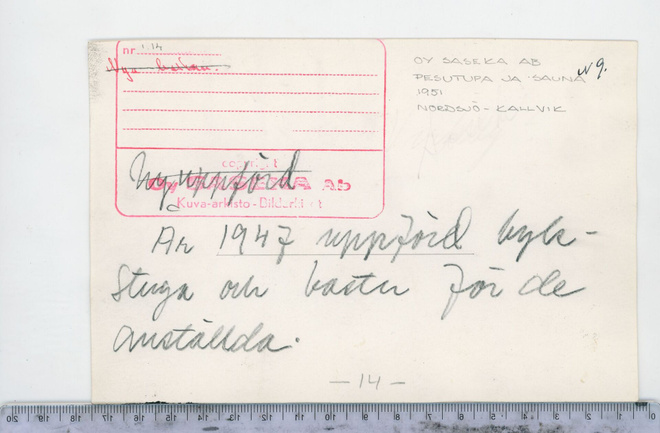 nr 1.14
Nya bastun.
OY SASEKA AB
PESUTUPA JA SAUNA
1951
NORDSJÖ - KALLVIK
N 9.
copyright
Oy SASEKA Ab
Kuva-arkisto - Bildarkivet
Ny uppförd
År 1947 uppförd byk-
stuga och bastu för de
anställda.
- 14 -
0 1 2 3 4 5 6 7 8 9 10 11 12 13 14 15 16 17 18 19 20